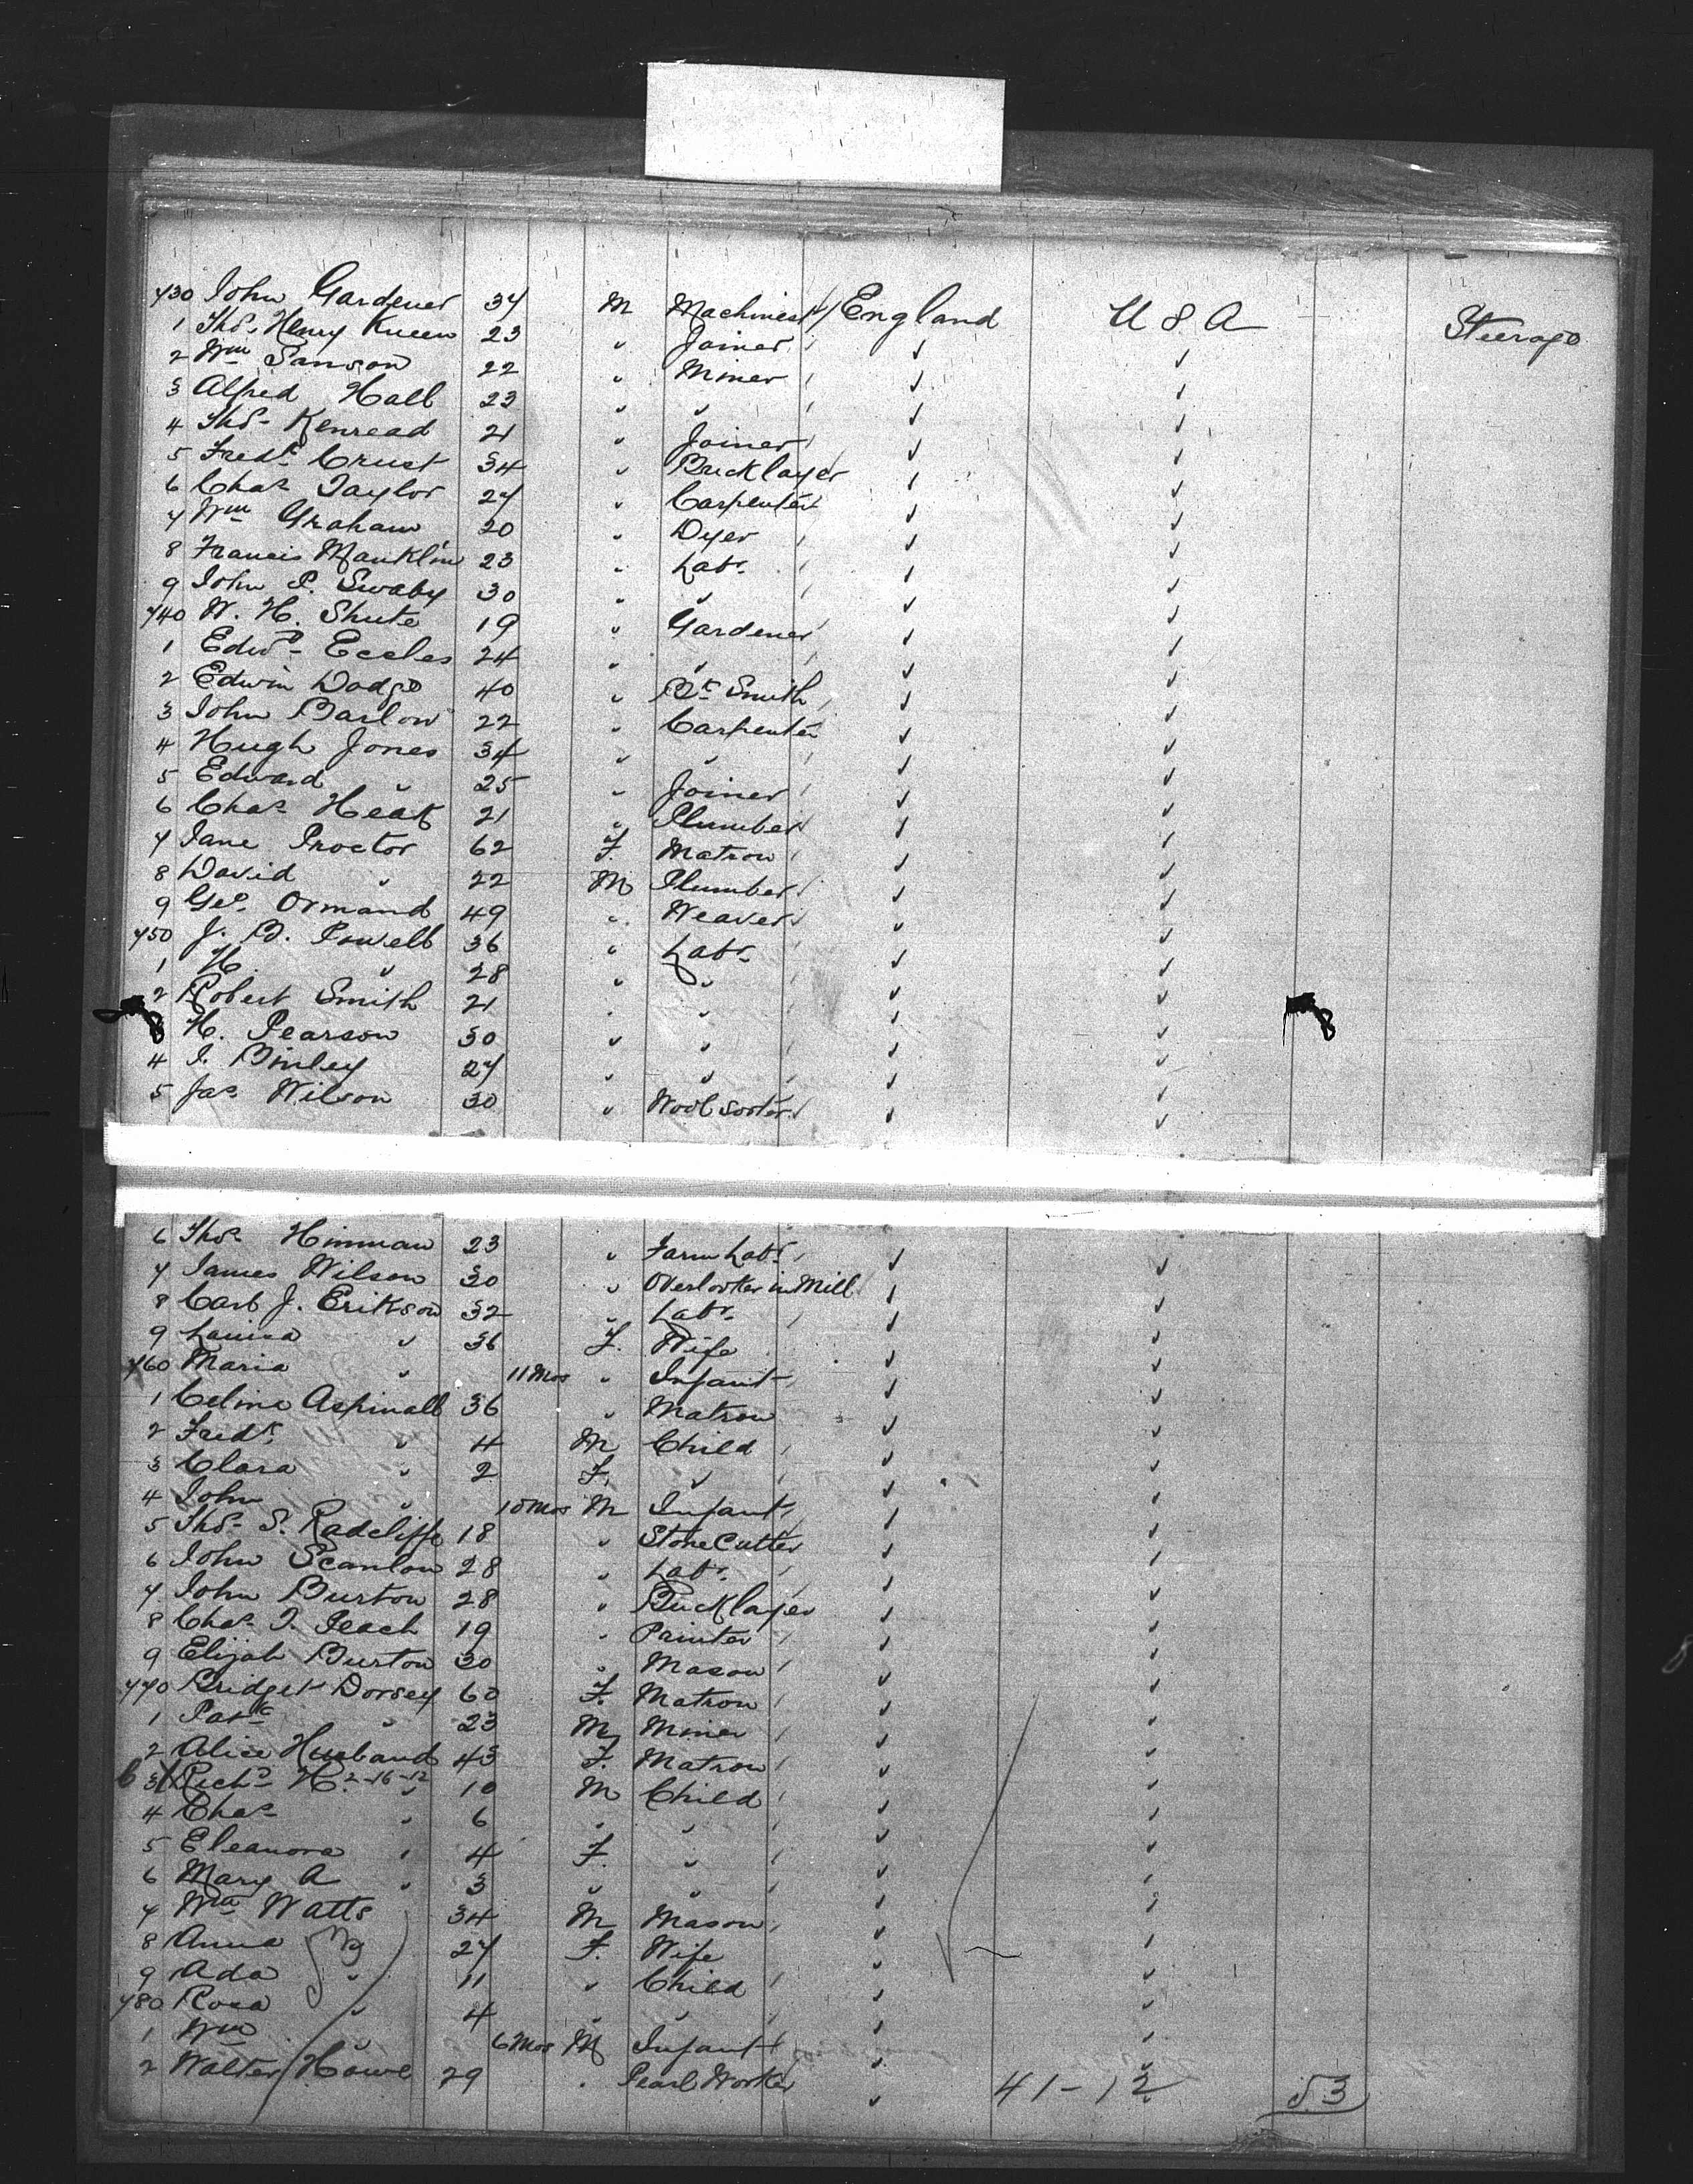 730 John Gardener 37 M Machinist England U S A Steerage
1 Thos. Henry Kneen 23 " Joiner " "
2 Wm Sanson 22 " Miner " "
3 Alfred Hall 23 " " " "
4 Thos. Kenread 21 " Joiner " "
5 Fredk. Crust 34 " Bricklayer " "
6 Chas. Taylor 27 " Carpenter " "
7 Wm Graham 20 " Dyer " "
8 Francis Manklin 23 " Labr. " "
9 John P. Swaby 30 " " " "
740 W. H. Shute 19 " Gardener " "
1 Edwd. Eccles 24 " " " "
2 Edwin Dodge 40 " Bk Smith " "
3 John Barlow 22 " Carpenter " "
4 Hugh Jones 34 " " " "
5 Edward " 25 " Joiner " "
6 Chas. 21 " Plumber " "
7 Jane Proctor 62 F. Matron " "
8 David " 22 M Plumber " "
9 Geo. Ormand 49 " Weaver " "
750 J. B. Powell 36 " Labr. " "
1 H. " 28 " " " "
2 Robert Smith 21 " " " "
3 H. Pearson 30 " " " "
4 J. Binley 27 " " " "
5 Jas. Wilson 30 " Wool Sorter " "
6 Thos. Hinman 23 " Farm Labr. " "
7 James Wilson 30 " Overlooker in Mill " "
8 Carl J. Erikson 32 " Labr. " "
9 Louisa " 36 F. Wife " "
760 Maria " 11 Mos " Infant " "
1 Celina Aspinall 36 " Matron " "
2 Fredk. " 4 M Child " "
3 Clara " 2 F. " " "
4 John " 10 Mos M Infant " "
5 Thos. S. Radcliffe 18 " Stone Cutter " "
6 John Scanlon 28 " Labr. " "
7 John Burton 28 " Bricklayer " "
8 Chas. T. Peach 19 " Painter " "
9 Elijah Burton 30 " Mason " "
770 Bridget Dorsey 60 F. Matron " "
1 Patk " 23 M Miner " "
2 Alice Husband 43 F. Matron " "
3 Richd H. 2-16-12 " 10 M Child " "
4 Chas. " 6 " " " "
5 Eleanora " 4 F. " " "
6 Mary A " 3 " " " "
7 Wm Watts 34 M Mason " "
8 Anna " 27 F. Wife " "
9 Ada " 11 " Child " "
780 Rosa " 4 " " " "
1 Wm " 6 Mos M Infant " "
2 Walter Howe 29 " Pearl Worker "
41-12 53